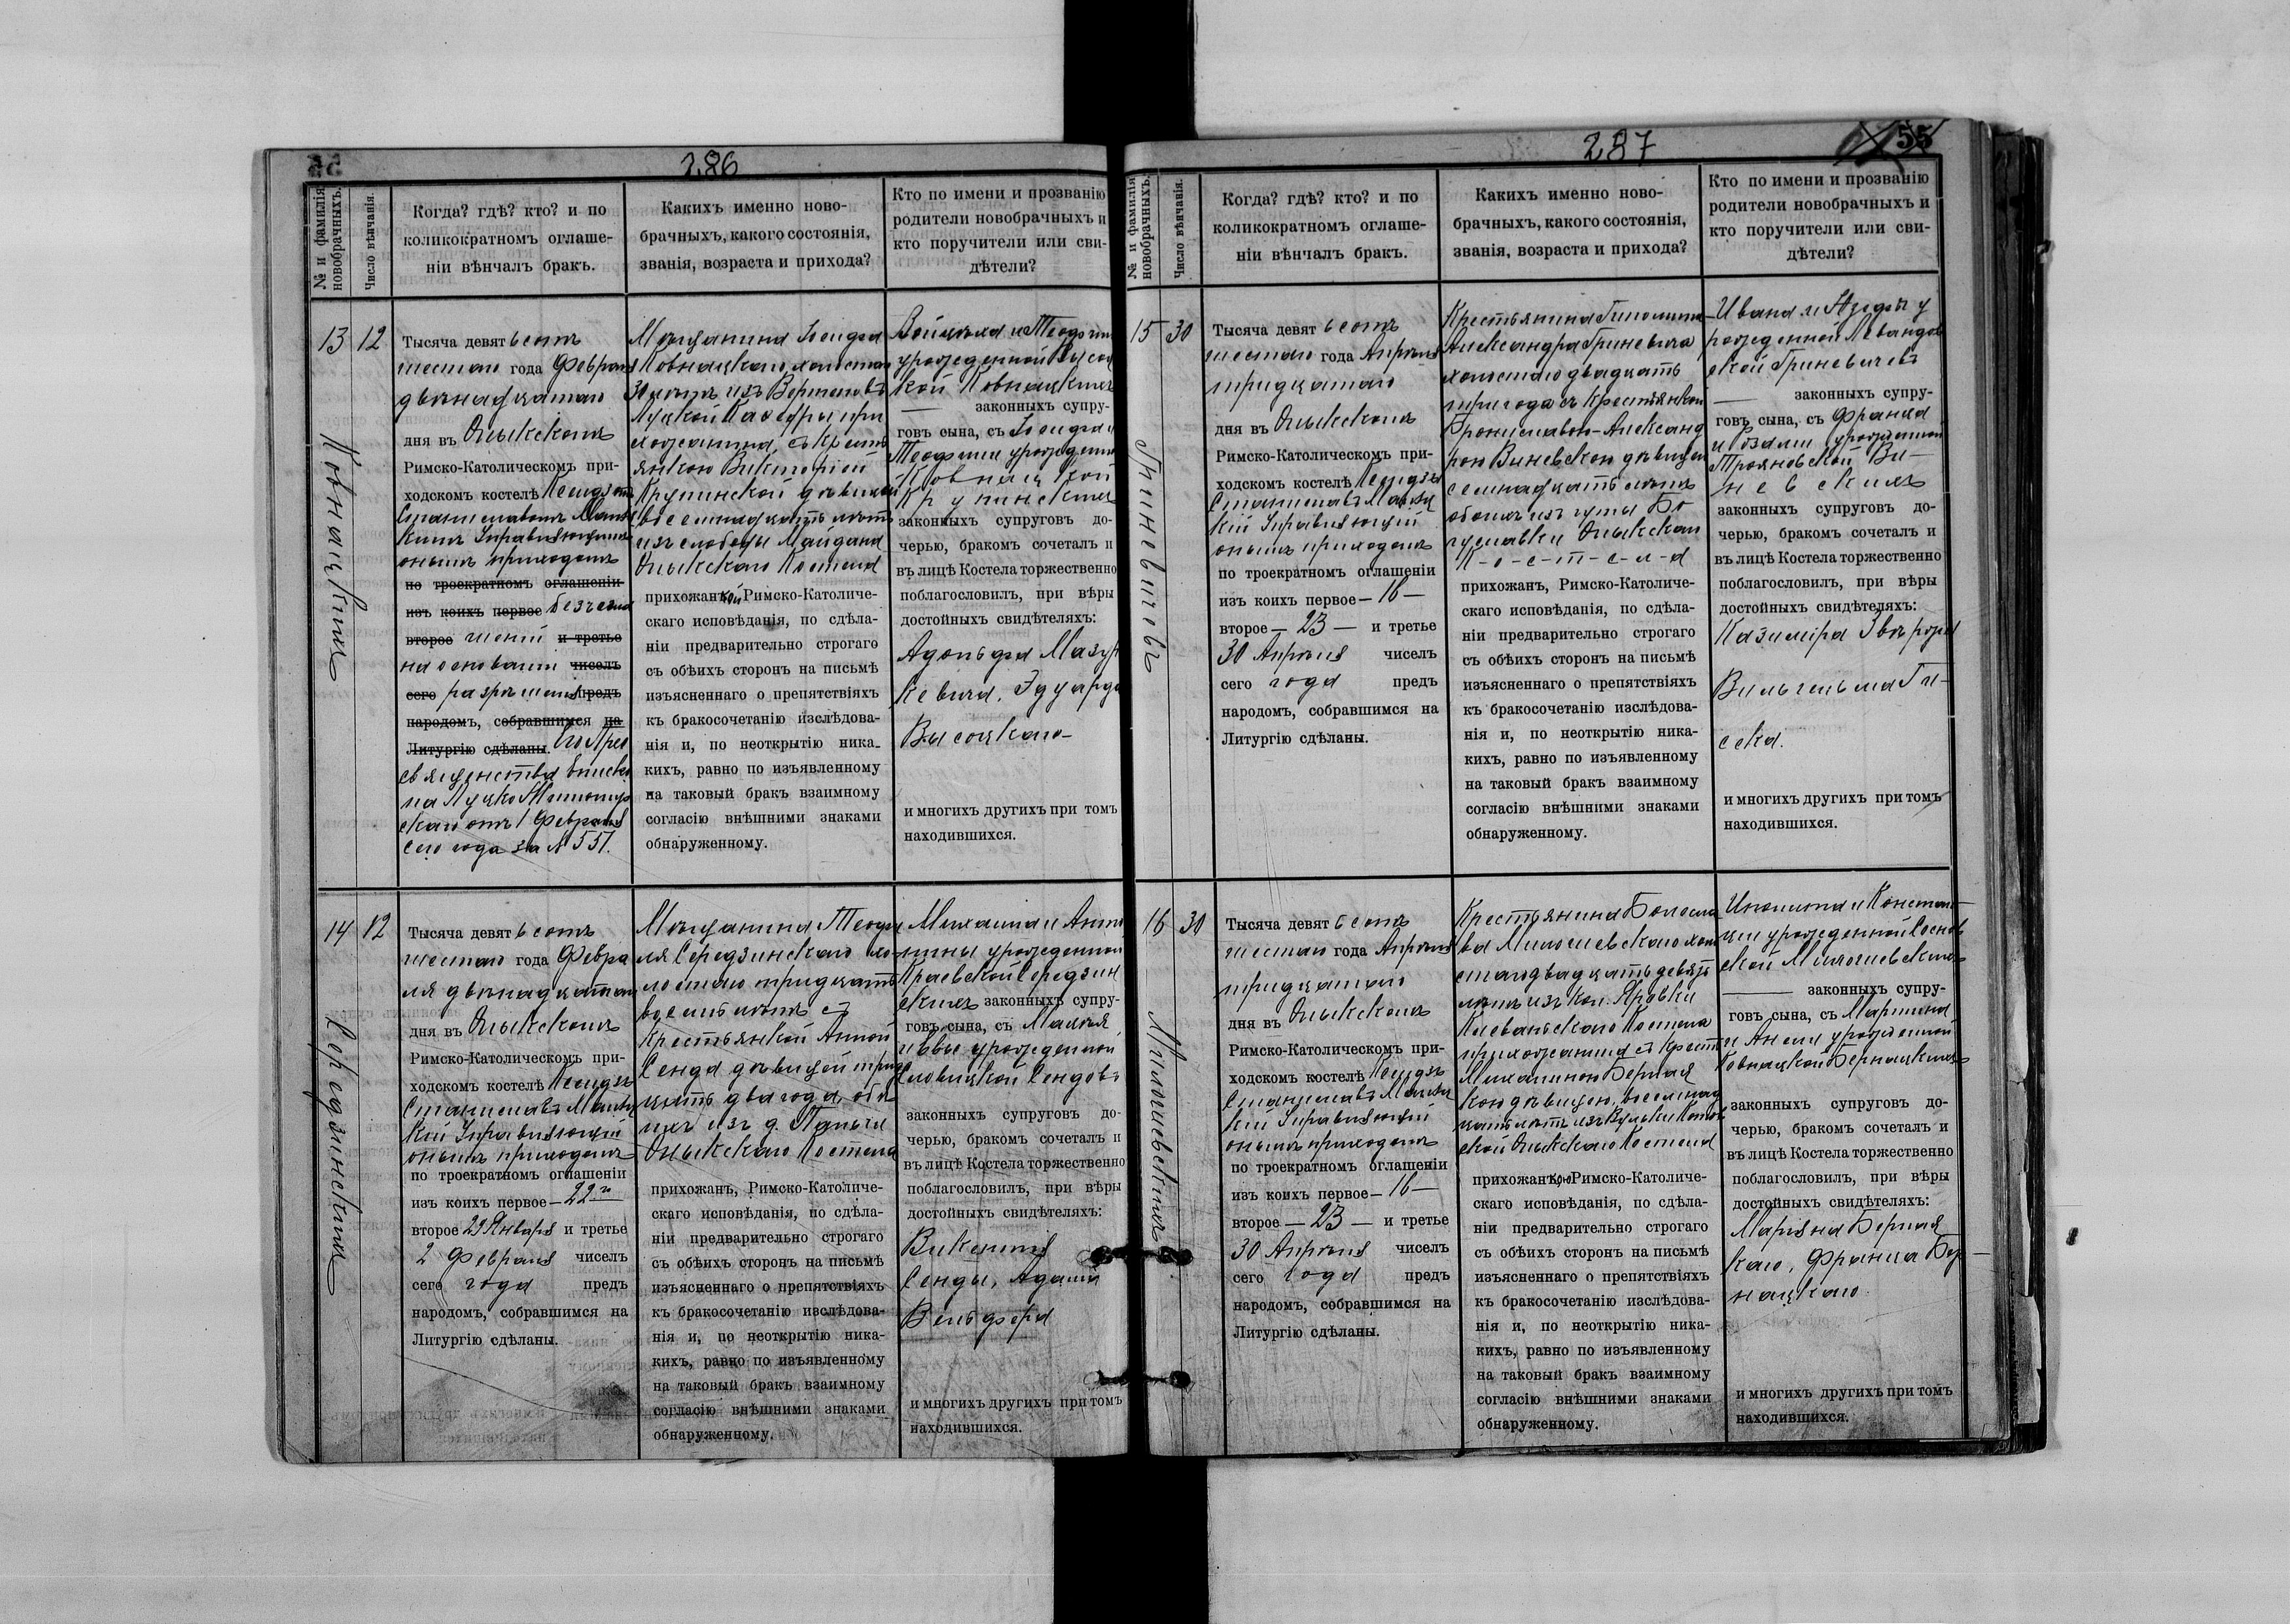 286
№ и фамилія
новобрачныхъ.
Число вѣнчанія.
Когда? гдѣ? кто? и по
коликократномъ оглаше-
ніи вѣнчалъ бракъ.
Какихъ именно ново-
брачныхъ, какого состоянія,
званія, возраста и прихода?
Кто по имени и прозванію
родители новобрачныхъ и
кто поручители или сви-
дѣтели?
13
12
Ковнацкихъ
Тысяча девятьсотъ
шестаго года Февраля
двѣнадцатаго
дня въ Олыкскомъ
Римско-Католическомъ при-
ходскомъ костелѣ Ксендзомъ
Станиславомъ
Управляющимъ
онымъ приходомъ
по троекратномъ оглашеніи
изъ коихъ первое безъ огла
второе шеній и третье
на основаніи чиселъ
сего разрѣшенія предъ
народомъ, собравшимся на
Литургію сдѣланы. Его Прео
священства Еписко
па Луцко Житомір
скаго отъ 1 Февраля
сего года за № 551.
Мѣщанина Іосифа
Ковнацкаго, холостаго
30 лѣтъ изъ
Луцкой Каѳедры при
хожанина, съ крестъ
янкою Викторіей
Крупинской дѣвицей
восемнадцать лѣтъ
изъ слободы Майдана
Олыкскаго Костела
прихожанкой Римско-Католиче-
скаго исповѣданія, по сдѣла-
ніи предварительно строгаго
съ обѣихъ сторонъ на письмѣ
изъясненнаго о препятствіяхъ
къ бракосочетанію изслѣдова-
нія и, по неоткрытію ника-
кихъ, равно по изъявленному
на таковый бракъ взаимному
согласію внѣшними знаками
обнаруженному.
Войцѣха и Теофили
урожденной
Ковнацкихъ
законныхъ супру-
говъ сына, съ Іосифа и
Теофили урожденной
Ковнацкой
Крупинскихъ
законныхъ супруговъ до-
черью, бракомъ сочеталъ и
въ лицѣ Костела торжественно
поблагословилъ, при вѣры
достойныхъ свидѣтеляхъ:
Адольфа Мазур
кевича, Эдуарда
Высоцкаго
и многихъ другихъ при томъ
находившихся.
14
12
Середзинскихъ
Тысяча девятьсотъ
шестаго года Февра
ля двѣнадцатаго
дня въ Олыкскомъ
Римско-Католическомъ при-
ходскомъ костелѣ Ксендзъ
Станиславъ
Управляющій
онымъ приходомъ
по троекратномъ оглашеніи
изъ коихъ первое — 22го
второе 29 Января и третье
2 Февраля чиселъ
сего года предъ
народомъ, собравшимся на
Литургію сдѣланы.
Мѣщанина Теофи
ля Середзинскаго хо-
лостаго тридцать
восемь лѣтъ съ
крестьянкой Анной
Сенда дѣвицей трид
цать два года, обо
ихъ изъ д.
Олыкскаго Костела
прихожанъ, Римско-Католиче-
скаго исповѣданія, по сдѣла-
ніи предварительно строгаго
съ обѣихъ сторонъ на письмѣ
изъясненнаго о препятствіяхъ
къ бракосочетанію изслѣдова-
нія и, по неоткрытію ника-
кихъ, равно по изъявленному
на таковый бракъ взаимному
согласію внѣшними знаками
обнаруженному.
Михаила и Анто
нины урожденной
Краевской Середзин
скихъ законныхъ супру-
говъ сына, съ
и Евы урожденной
Сендовъ
законныхъ супруговъ до-
черью, бракомъ сочеталъ и
въ лицѣ Костела торжественно
поблагословилъ, при вѣры
достойныхъ свидѣтеляхъ:
Викентія
Сенды, Адама
Вельфера
и многихъ другихъ при томъ
находившихся.
287
55
№ и фамилія
новобрачныхъ.
Число вѣнчанія.
Когда? гдѣ? кто? и по
коликократномъ оглаше-
ніи вѣнчалъ бракъ.
Какихъ именно ново-
брачныхъ, какого состоянія,
званія, возраста и прихода?
Кто по имени и прозванію
родители новобрачныхъ и
кто поручители или сви-
дѣтели?
15
30
Гриневичевъ
Тысяча девятьсотъ
шестаго года Апрѣля
тридцатаго
дня въ Олыкскомъ
Римско-Католическомъ при-
ходскомъ костелѣ Ксендзъ
Станиславъ
Управляющій
онымъ приходомъ
по троекратномъ оглашеніи
изъ коихъ первое — 16 —
второе — 23 — и третье
30 Апрѣля чиселъ
сего года предъ
народомъ, собравшимся на
Литургію сдѣланы.
Крестьянина
Александра Гриневича
холостаго двадцать
три года съ крестьянкой
Брониславою-Александ
рою Виневскою дѣвицею
семнадцать лѣтъ
обоихъ изъ гуты Бо
гуславки Олыкскаго
К-о-с-т-е-л-а
прихожанъ, Римско-Католиче-
скаго исповѣданія, по сдѣла-
ніи предварительно строгаго
съ обѣихъ сторонъ на письмѣ
изъясненнаго о препятствіяхъ
къ бракосочетанію изслѣдова-
нія и, по неоткрытію ника-
кихъ, равно по изъявленному
на таковый бракъ взаимному
согласію внѣшними знаками
обнаруженному.
Ивана и Юзефы у
рожденной Левандов
ской Гриневичевъ
законныхъ супру-
говъ сына, съ Франца
и Розаліи урожденной
Трояновской Ви-
невскихъ
законныхъ супруговъ до-
черью, бракомъ сочеталъ и
въ лицѣ Костела торжественно
поблагословилъ, при вѣры
достойныхъ свидѣтеляхъ:
Казиміра
Вильгельма Ги-
ска.
и многихъ другихъ при томъ
находившихся.
16
30
Милошевскихъ
Тысяча девятьсотъ
шестаго года Апрѣля
тридцатаго
дня въ Олыкскомъ
Римско-Католическомъ при-
ходскомъ костелѣ Ксендзъ
Станиславъ
Управляющій
онымъ приходомъ
по троекратномъ оглашеніи
изъ коихъ первое — 16 —
второе — 23 — и третье
30 Апрѣля чиселъ
сего года предъ
народомъ, собравшимся на
Литургію сдѣланы.
Крестьянина Болесла
ва Милошевскаго холо
стаго двадцать девять
лѣтъ изъ кол.
Клеванскаго Костела
прихожанина съ крест
Михалиною Бернац
кою дѣвицею, восемнад
цать лѣтъ изъ
Олыкскаго Костела
прихожанкою Римско-Католиче-
скаго исповѣданія, по сдѣла-
ніи предварительно строгаго
съ обѣихъ сторонъ на письмѣ
изъясненнаго о препятствіяхъ
къ бракосочетанію изслѣдова-
нія и, по неоткрытію ника-
кихъ, равно по изъявленному
на таковый бракъ взаимному
согласію внѣшними знаками
обнаруженному.
Иполита и Констан-
ціи урожденной Соснов
ской Милошевскихъ
законныхъ супру-
говъ сына, съ Мартина
и Анели урожденной
Ковнацкой Бернацкихъ
законныхъ супруговъ до-
черью, бракомъ сочеталъ и
въ лицѣ Костела торжественно
поблагословилъ, при вѣры
достойныхъ свидѣтеляхъ:
Маріяна Бернац
каго, Франца Бер-
нацкаго.
и многихъ другихъ при томъ
находившихся.